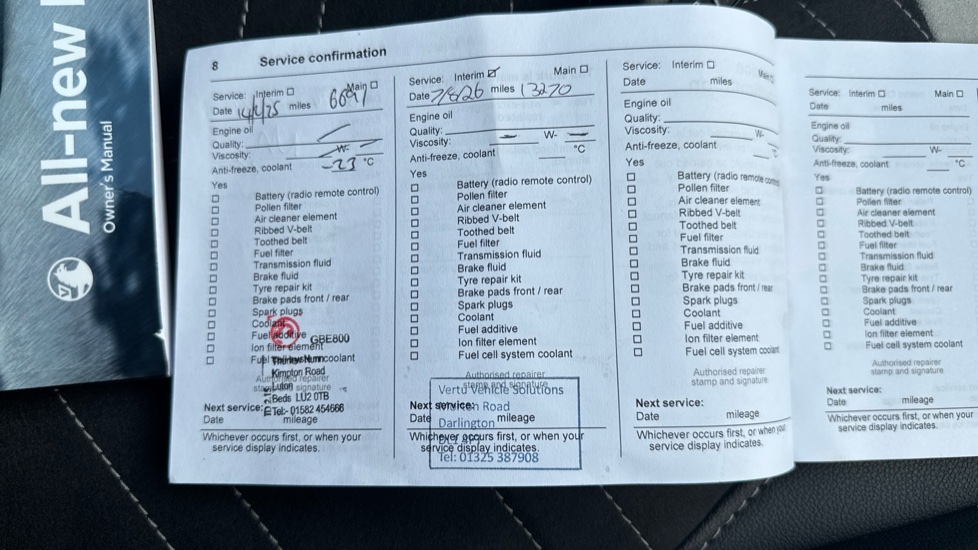 All-new
Owner's Manual
8 Service confirmation
Service: Interim ☐ Main ☐
Date miles 6691
Engine oil
Quality:
Viscosity: W-
Anti-freeze, coolant -23 °C
Yes
☐ Battery (radio remote control)
☐ Pollen filter
☐ Air cleaner element
☐ Ribbed V-belt
☐ Toothed belt
☐ Fuel filter
☐ Transmission fluid
☐ Brake fluid
☐ Tyre repair kit
☐ Brake pads front / rear
☐ Spark plugs
☐ Coolant
☐ Fuel additive GBE800
☐ Ion filter element
☐ Fuel coolant
Kimpton Road
Authorised repairer
stamp and signature
Luton
Beds LU2 0TB
Tel:- 01582 454666
Next service:
Date mileage
Whichever occurs first, or when your
service display indicates.
Service: Interim ☑ Main ☐
Date 7/8/26 miles 13270
Engine oil
Quality:
Viscosity: — W- —
Anti-freeze, coolant °C
Yes
☐ Battery (radio remote control)
☐ Pollen filter
☐ Air cleaner element
☐ Ribbed V-belt
☐ Toothed belt
☐ Fuel filter
☐ Transmission fluid
☐ Brake fluid
☐ Tyre repair kit
☐ Brake pads front / rear
☐ Spark plugs
☐ Coolant
☐ Fuel additive
☐ Ion filter element
☐ Fuel cell system coolant
Authorised repairer
stamp and signature
Vertu Vehicle Solutions
Road
Darlington
Tel: 01325 387908
Next service:
Date mileage
Whichever occurs first, or when your
service display indicates.
Service: Interim ☐ Main ☐
Date miles
Engine oil
Quality:
Viscosity: W-
Anti-freeze, coolant °C
Yes
☐ Battery (radio remote control)
☐ Pollen filter
☐ Air cleaner element
☐ Ribbed V-belt
☐ Toothed belt
☐ Fuel filter
☐ Transmission fluid
☐ Brake fluid
☐ Tyre repair kit
☐ Brake pads front / rear
☐ Spark plugs
☐ Coolant
☐ Fuel additive
☐ Ion filter element
☐ Fuel cell system coolant
Authorised repairer
stamp and signature
Next service:
Date mileage
Whichever occurs first, or when your
service display indicates.
Service: Interim ☐ Main ☐
Date miles
Engine oil
Quality:
Viscosity: W-
Anti-freeze, coolant °C
Yes
☐ Battery (radio remote control)
☐ Pollen filter
☐ Air cleaner element
☐ Ribbed V-belt
☐ Toothed belt
☐ Fuel filter
☐ Transmission fluid
☐ Brake fluid
☐ Tyre repair kit
☐ Brake pads front / rear
☐ Spark plugs
☐ Coolant
☐ Fuel additive
☐ Ion filter element
☐ Fuel cell system coolant
Authorised repairer
stamp and signature
Next service:
Date mileage
Whichever occurs first, or when your
service display indicates.